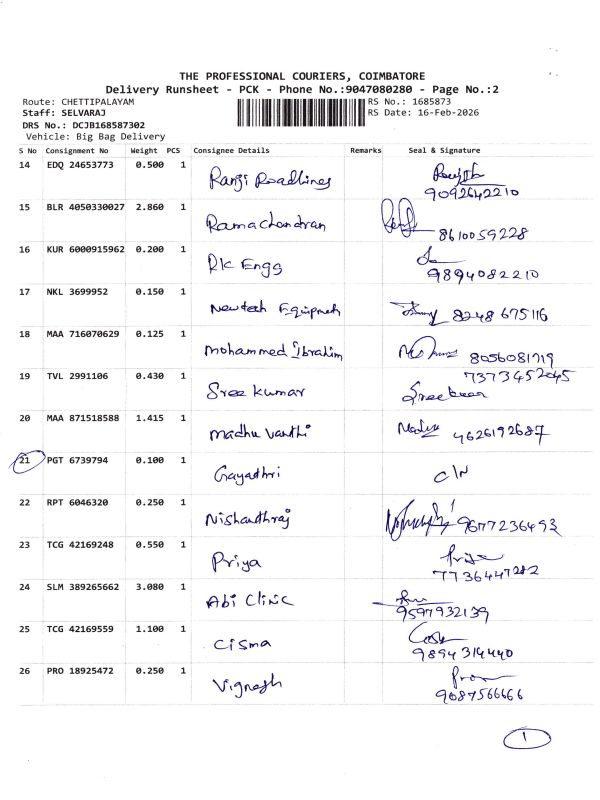 THE PROFESSIONAL COURIERS, COIMBATORE
Delivery Runsheet - PCK - Phone No.:9047080280 - Page No.:2
Route: CHETTIPALAYAM RS No.: 1685873
Staff: SELVARAJ RS Date: 16-Feb-2026
DRS No.: DCJB168587302
Vehicle: Big Bag Delivery
S No Consignment No Weight PCS Consignee Details Remarks Seal & Signature
14 EDQ 24653773 0.500 1 Ranji Roadlines
9092642210
15 BLR 4050330027 2.860 1 Ramachandran
8610059228
16 KUR 6000915962 0.200 1 RK Engg
9894082210
17 NKL 3699952 0.150 1 Newtech Equipmeh 8248 675116
18 MAA 716070629 0.125 1 Mohammed Ibrahim 8056081719
19 TVL 2991106 0.430 1 Sree kumar 7373452045
20 MAA 871518588 1.415 1 Madhu Vanthi 4626192687
21 PGT 6739794 0.100 1 Gayadhri C/N
22 RPT 6046320 0.250 1 Nishandhraj 9677236493
23 TCG 42169248 0.550 1 Priya Priya
7736447282
24 SLM 389265662 3.080 1 Abi Clinic
9597932139
25 TCG 42169559 1.100 1 Cisma
9894314440
26 PRO 18925472 0.250 1 Vignesh
9087566666
1